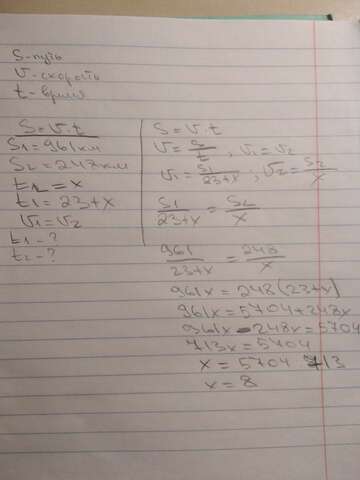 S-путь
V-скорость
t-время
S=V·t
S1=961км
S2=248км
t2=x
t1=23+x
V1=V2
t1-?
t2-?
S=V·t
V=S/t, V1=V2
V1=S1/23+x, V2=S2/x
S1/23+x=S2/x
961/23+x=248/x
961x=248(23+x)
961x=5704+248x
961x-248x=5704
713x=5704
x=5704 713
x=8